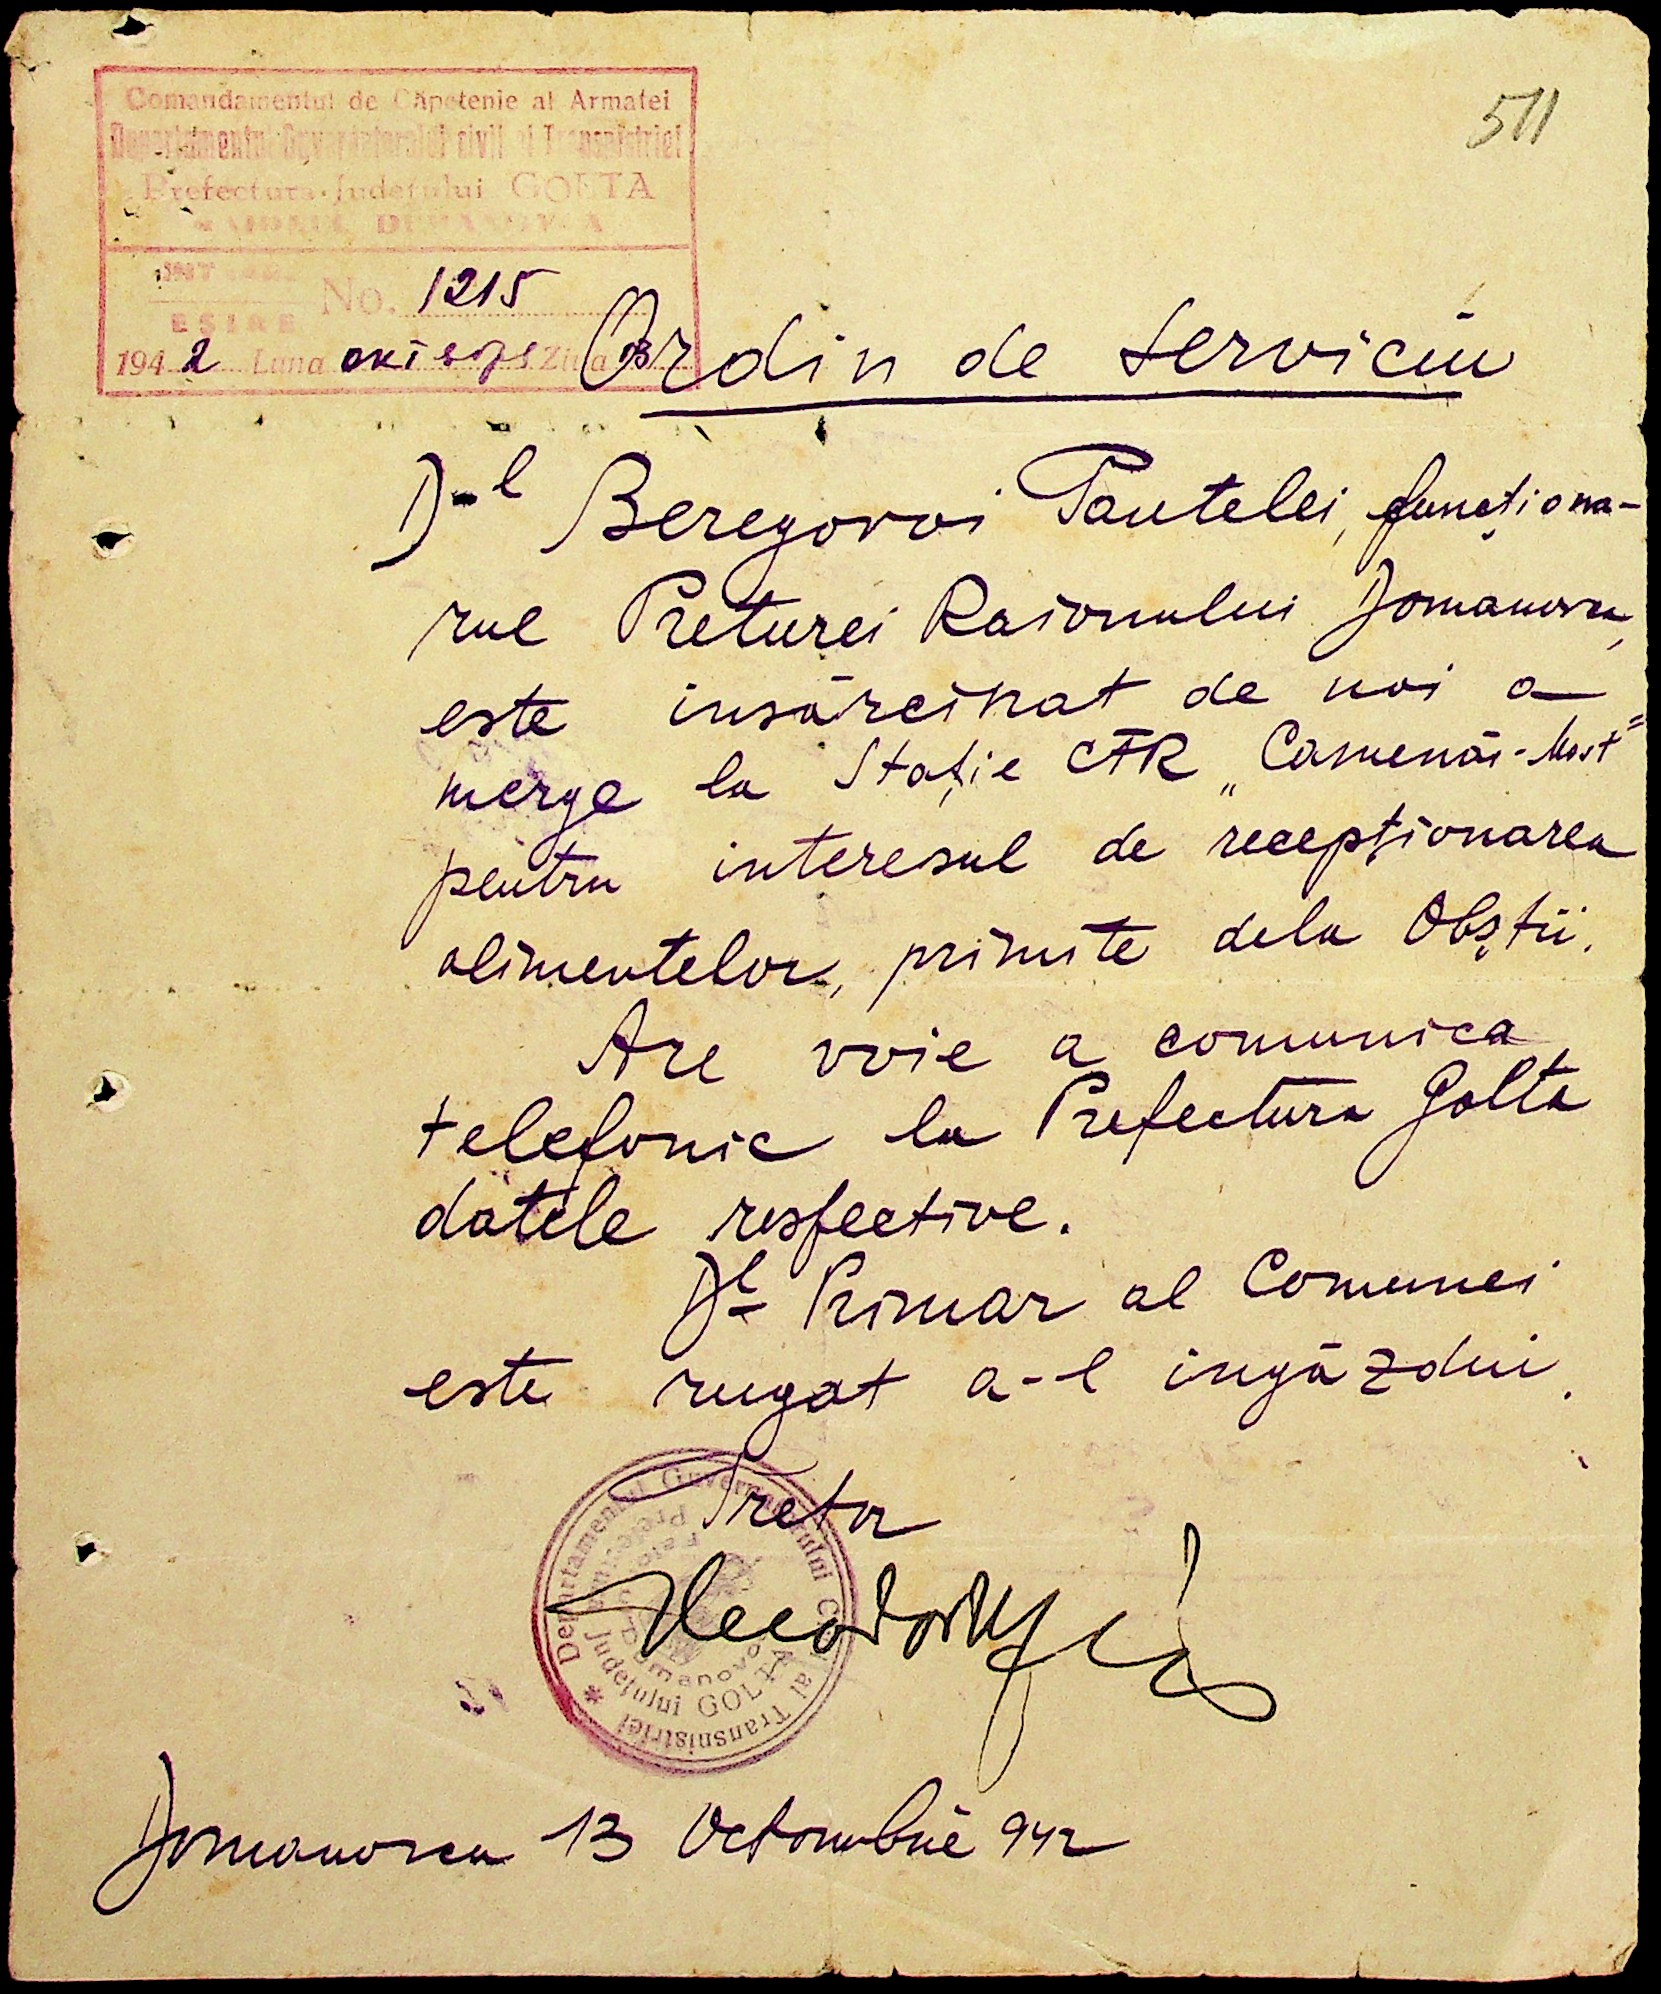 511
Comandamentul de Căpetenie al Armatei
Departamentul Guvernatorului civil al Transnistriei
Prefectura Județului GOLTA
No. 1215
EȘIRE
1942 Luna октября Ziua 13
Ordin de serviciu
D-l Beregovoi Pantelei, funcționa-
rul Preturei Raionului Domanovca,
este insărcinat de noi a
merge la Stație CFR „Camenâi-Most"
pentru interesul de recepționarea
alimentelor, primite dela Obștii.
Are voie a comunica
telefonic la Prefectura Golta
datele respective.
Dl Primar al Comunei
este rugat a-l ingăzdui.
Pretor
Departamentul Guvernatorului Civil al Transnistriei
Prefectura Județului GOLTA
Domanovca 13 Octombrie 942